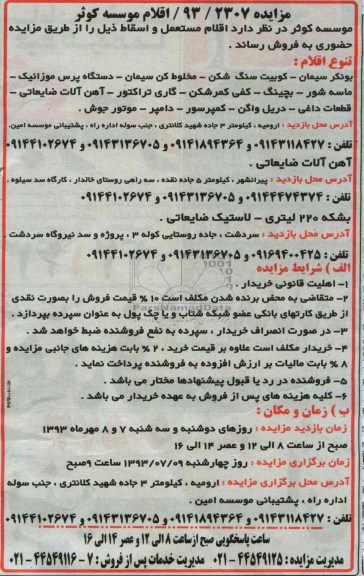 مزایده ۲۳۰۷ / ۹۳ / اقلام موسسه کوثر
موسسه کوثر در نظر دارد اقلام مستعمل و اسقاط ذیل را از طریق مزایده
حضوری به فروش رساند .
تنوع اقلام :
بونکر سیمان - کوبیت سنگ شکن - مخلوط کن سیمان - دستگاه پرس موزائیک -
ماسه شور - بچینگ - کفی کمرشکن - گاری تراکتور - آهن آلات ضایعاتی -
قطعات داغی - دریل واگن - کمپرسور - دامپر - موتور جوش .
آدرس محل بازدید : ارومیه ، کیلومتر ۳ جاده شهید کلانتری ، جنب سوله اداره راه ، پشتیبانی موسسه امین.
تلفن : ۰۹۱۴۳۱۱۸۴۲۷ و ۰۹۱۴۱۸۹۴۳۶۴ و ۰۹۱۴۳۱۳۶۷۰۵ و ۰۹۱۴۴۱۰۲۶۷۴
آهن آلات ضایعاتی .
آدرس محل بازدید : پیرانشهر ، کیلومتر ۵ جاده نقده ، سه راهی روستای خالدار ، کارگاه سد سیلوه .
تلفن : ۰۹۱۴۴۴۷۴۳۷۴ و ۰۹۱۴۳۱۳۶۷۰۵ و ۰۹۱۴۴۱۰۲۶۷۴
بشکه ۲۲۰ لیتری - لاستیک ضایعاتی .
آدرس محل بازدید : سردشت ، جاده روستایی کوله ۳ ، پروژه و سد نیروگاه سردشت .
تلفن : ۰۹۱۶۹۴۰۰۴۲۵ و ۰۹۱۴۳۱۳۶۷۰۵ و ۰۹۱۴۴۱۰۲۶۷۴
الف ) شرایط مزایده
۱- اهلیت قانونی خریدار .
۲- متقاضی به محض برنده شدن مکلف است ۱۰ % قیمت فروش را بصورت نقدی
از طریق کارتهای بانکی عضو شبکه شتاب و یا چک پول به عنوان سپرده بپردازد .
۳- در صورت انصراف خریدار ، سپرده به نفع فروشنده ضبط خواهد شد .
۴- خریدار مکلف است علاوه بر قیمت خرید ، ۲ % بابت هزینه های جانبی مزایده و
۸ % بابت مالیات بر ارزش افزوده به فروشنده پرداخت نماید .
۵- فروشنده در رد یا قبول پیشنهادها مختار می باشد .
۶- کلیه هزینه های پس از فروش به عهده خریدار می باشد .
ب ) زمان و مکان :
زمان بازدید مزایده : روزهای دوشنبه و سه شنبه ۷ و ۸ مهرماه ۱۳۹۳
صبح از ساعت ۸ الی ۱۲ و عصر ۱۴ الی ۱۶
زمان برگزاری مزایده : روز چهارشنبه ۱۳۹۳/۰۷/۰۹ ساعت ۹صبح
آدرس محل برگزاری مزایده : ارومیه ، کیلومتر ۳ جاده شهید کلانتری ، جنب سوله
اداره راه ، پشتیبانی موسسه امین .
تلفن : ۰۹۱۴۳۱۱۸۴۲۷ و ۰۹۱۴۱۸۹۴۳۶۴ و ۰۹۱۴۳۱۳۶۷۰۵ و ۰۹۱۴۴۱۰۲۶۷۴
ساعت پاسخگویی صبح از ساعت ۸ الی ۱۲ و عصر ۱۴ الی ۱۶
مدیریت مزایده : ۴۴۵۴۹۱۲۵-۰۲۱ مدیریت خدمات پس از فروش : ۷ - ۴۴۵۴۹۱۱۶-۰۲۱